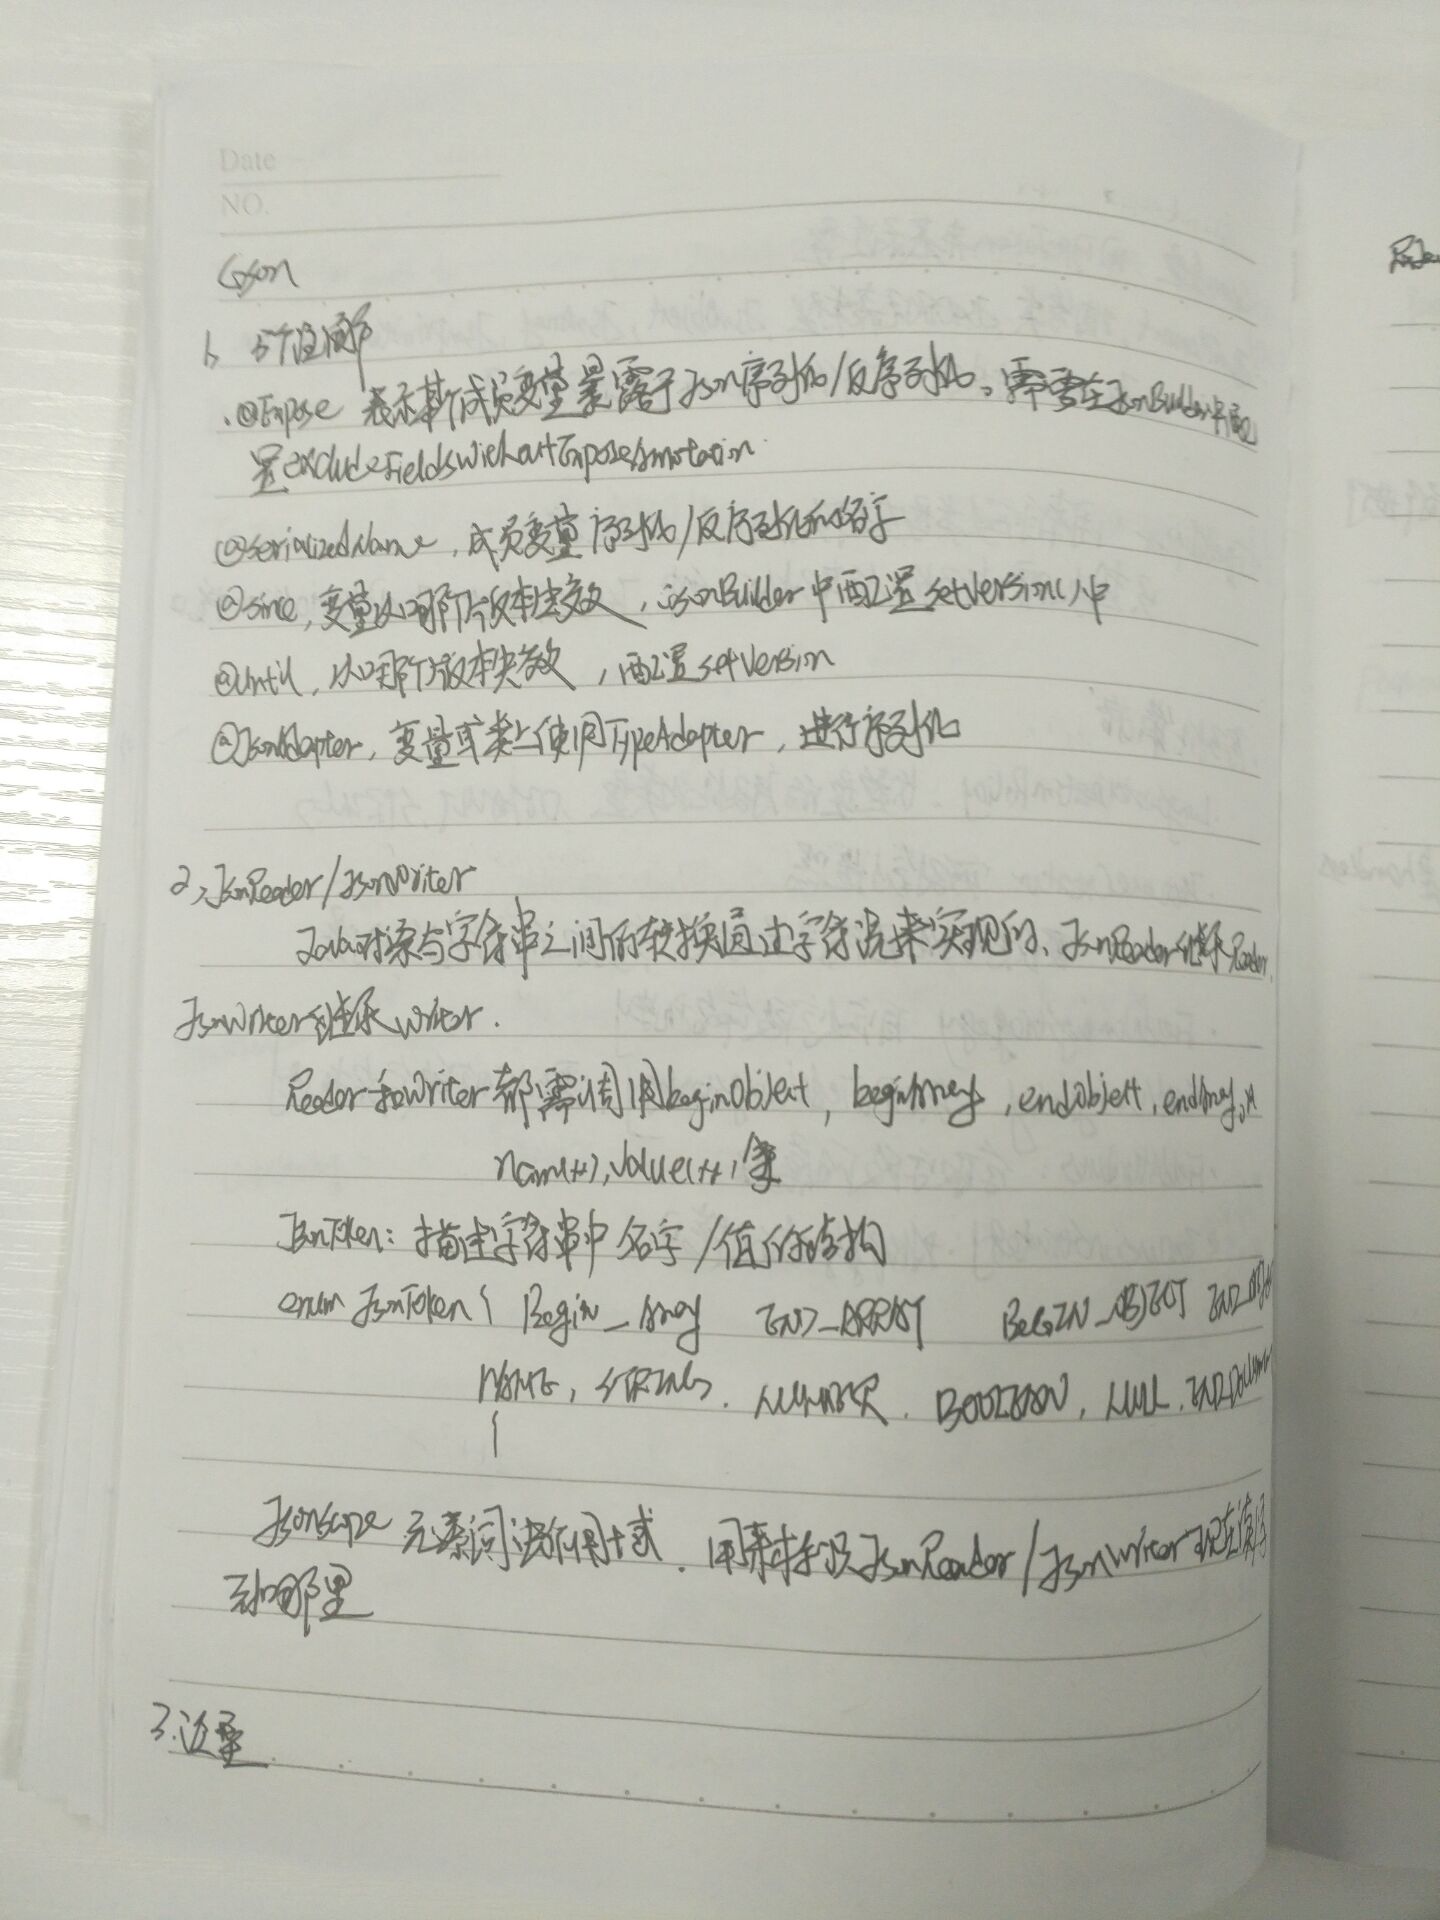 Date
NO.
Gson
1、5个注解
·@Expose 表示某成员变量暴露于Json序列化/反序列化。需要在JsonBuilder中配
置excludeFieldsWithoutExposeAnnotation.
@SerializedName，成员变量序列化/反序列化的名字
@since，变量从哪个版本生效，JsonBuilder中配置setVersion()中
@Until，从哪个版本失效，配置setVersion
@JsonAdapter，变量或类上使用TypeAdapter，进行序列化
2、JsonReader/JsonWriter
Java对象与字符串之间的转换通过字符流来实现的、JsonReader继承Reader,
JsonWriter继承Writer.
Reader和Writer都需调用beginObject, beginArray, endObject, endArray,
name(), value(), 等
JsonToken：描述字符串中名字/值的结构
enum JsonToken { Begin_Array END_ARRAY BEGIN_OBJECT END_OBJECT
NAME, STRING, NUMBER, BOOLEAN, NULL, END_DOCUMENT
}
JsonScope 元素词法作用域，用来标识JsonReader/JsonWriter现在读
到哪里
3.